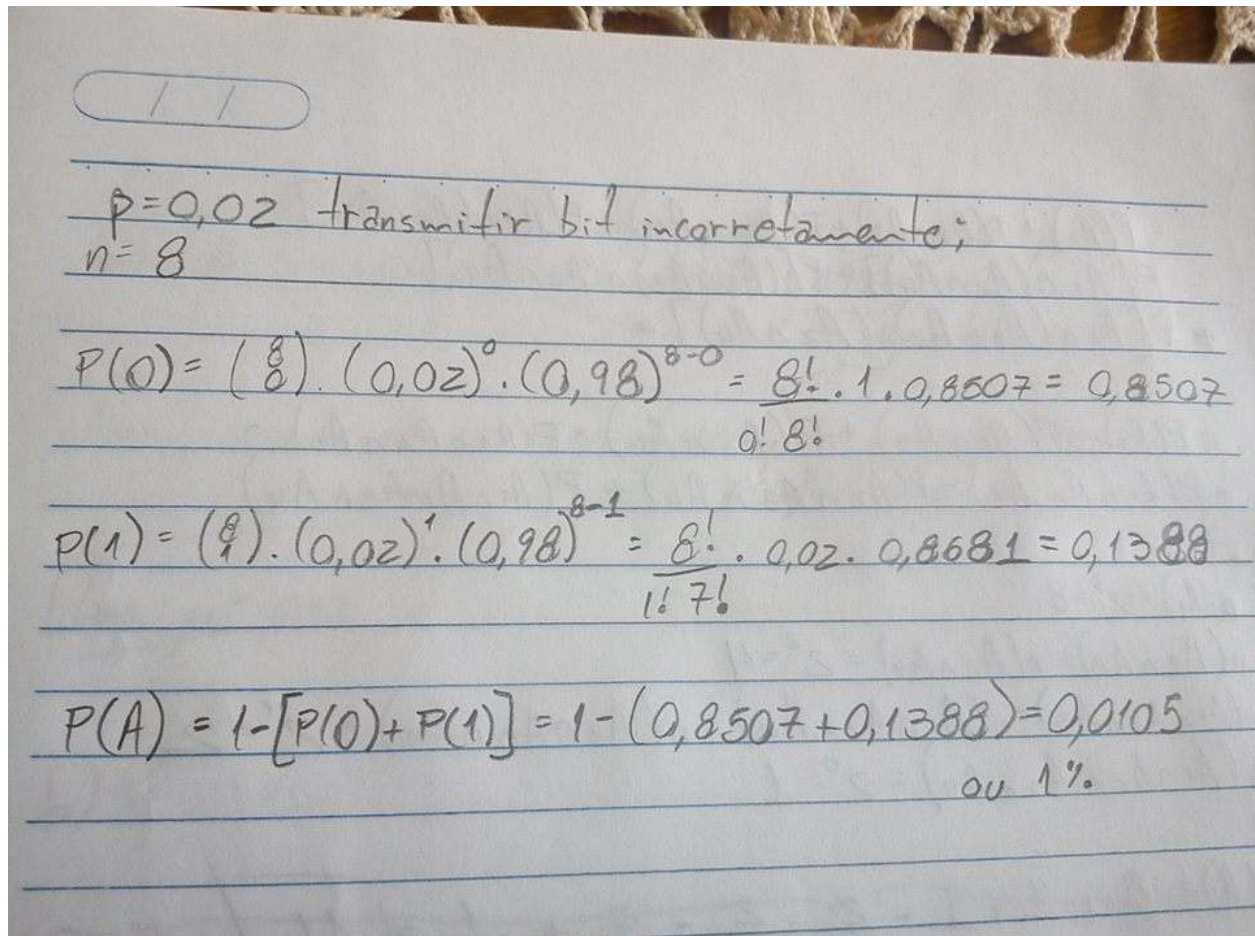 / /
p=0,02 transmitir bit incorretamente;
n= 8
P(0) = (8 0) . (0,02)^0 . (0,98)^8-0 = 8!/0! 8! . 1 . 0,8507 = 0,8507
P(1) = (8 1) . (0,02)^1 . (0,98)^8-1 = 8!/1! 7! . 0,02 . 0,8681 = 0,1388
P(A) = 1-[P(0)+P(1)] = 1-(0,8507+0,1388)=0,0105
ou 1%